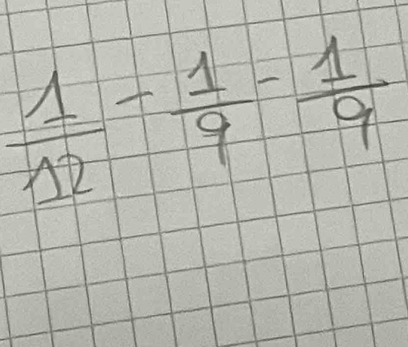 1/12 - 1/9 - 1/9